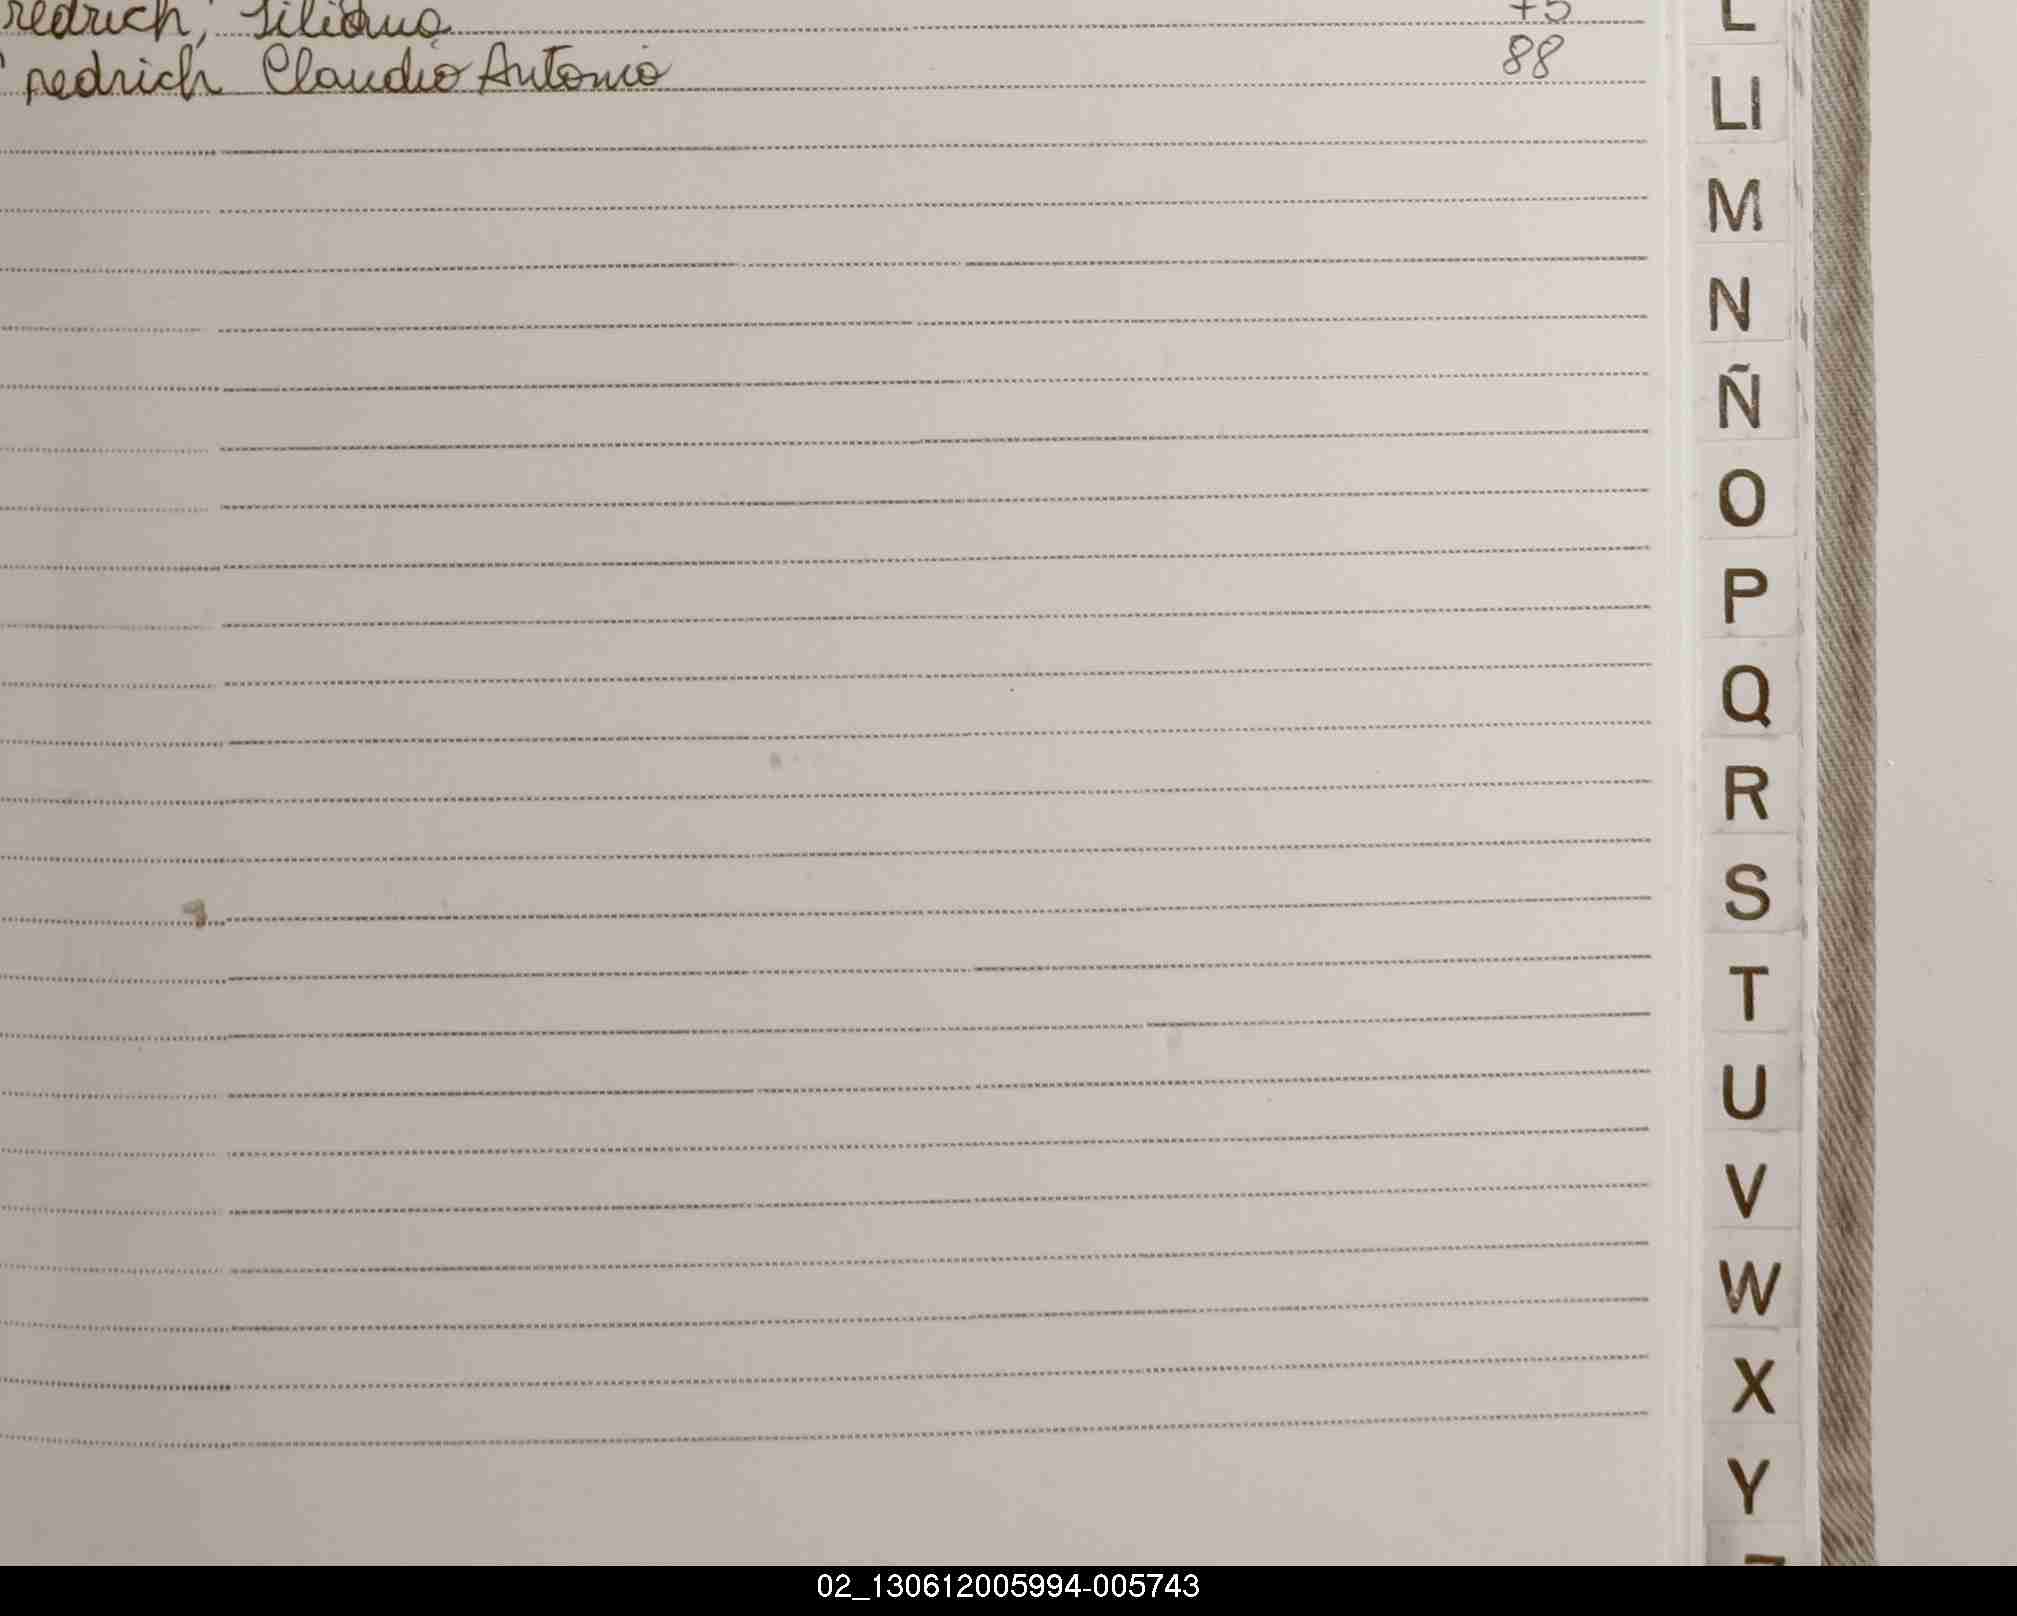 redrich, Liliana 75
redrich Claudio Antonio 88
L
Ll
M
N
Ñ
O
P
Q
R
S
T
U
V
W
X
Y
02_130612005994-005743